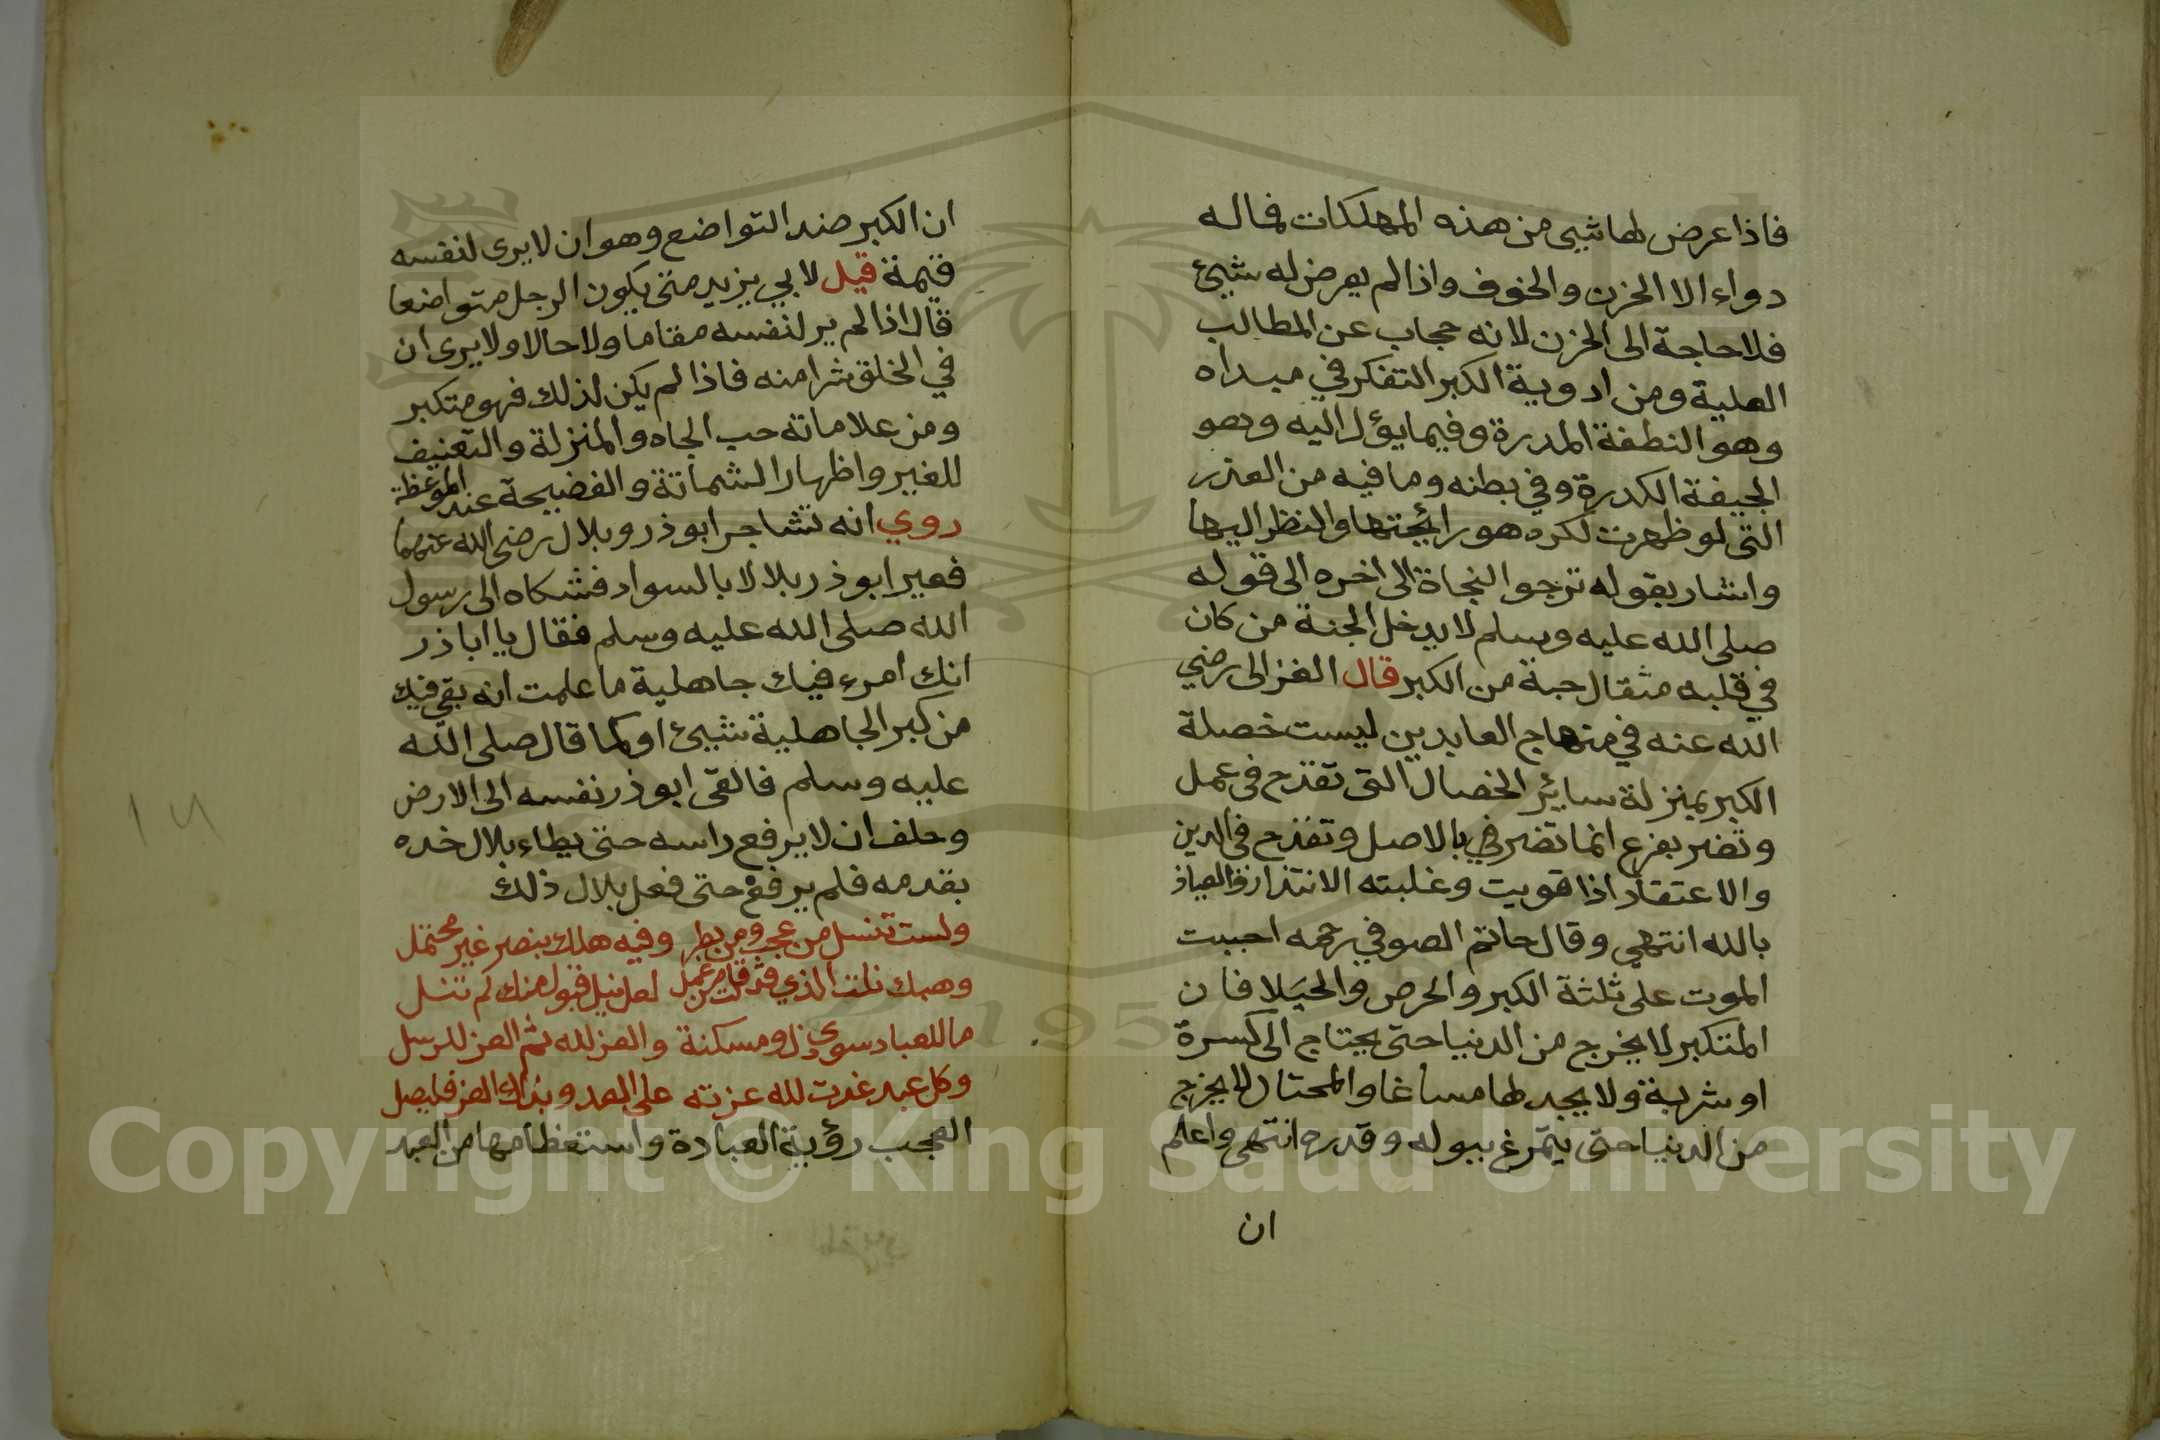 فاذا عرض لها شيى من هذه المهلكات فماله
دواء الا الحزن والخوف واذا لم يعرض له شيئ
فلا حاجة الى الحزن لانه حجاب عن المطالب
العلية ومن ادوية الكبر التفكر في مبداه
وهو النطفة المدرة وفيما يؤل اليه وهو
الجيفة الكدرة وفي بطنه وما فيه من العذر
التى لو ظهرت لكره هو رائحتها والنظر اليها
واشار بقوله ترجوا النجاة الى اخره الى قوله
صلى الله عليه وسلم لا يدخل الجنة من كان
في قلبه مثقال حبة من الكبر قال الغزالى رضي
الله عنه في منهاج العابدين ليست خصلة
الكبر بمنزلة سائر الخصال التى تقدح فى عمل
وتضر بفرع انما تضر في بالاصل وتقدح فى الدين
والاعتقاد اذا قويت وغلبته والعياذ
بالله انتهى وقال حاتم الصوفي رحمه احببت
الموت على ثلثة الكبر والحرص والخيلا فان
المتكبر لا يخرج من الدنيا حتى يحتاج الى كسرة
او شربة ولا يجد لها مساغا والمحتال لا يخرج
من الدنيا حتى يتمرغ ببوله وقدره انتهى واعلم
ان
ان الكبر ضد التواضع وهو ان لا يرى لنفسه
قيمة قيل لابي يزيد متى يكون الرجل متواضعا
قال اذا لم ير لنفسه مقاما ولا حالا ولا يرى ان
في الخلق شرا منه فاذا لم يكن لذلك فهو متكبر
ومن علاماته حب الجاه والمنزلة والتعنيف
للغير واظهار الشماتة والفضيحة عند الموعظة
روي انه تشاجر ابو ذر وبلال رضى الله عنهما
فعير ابو ذر بلالا بالسواد فشكاه الى رسول
الله صلى الله عليه وسلم فقال يا ابا ذر
انك امرء فيك جاهلية ما علمت انه بقى فيك
من كبر الجاهلية شيئ او كما قال صلى الله
عليه وسلم فالقى ابو ذر نفسه الى الارض
وحلف ان لا يرفع راسه حتى يطاء بلال خده
بقدمه فلم يرفع حتى فعل بلال ذلك
ولست تنسل من عجب ومن بطر وفيه هلك بنصر غير محتمل
وهبك نلت الذي قد قلت من عمل لعل نيل قبول منك لم تنل
ما للعباد سوى ذل ومسكنة والعز لله ثم العز للرسل
وكل عبد غدت لله عزته على العد وبذاك العز فليصل
العجب رؤية العبادة واستعظامها من العبد
١٢
Copyright © King Saud University
1957